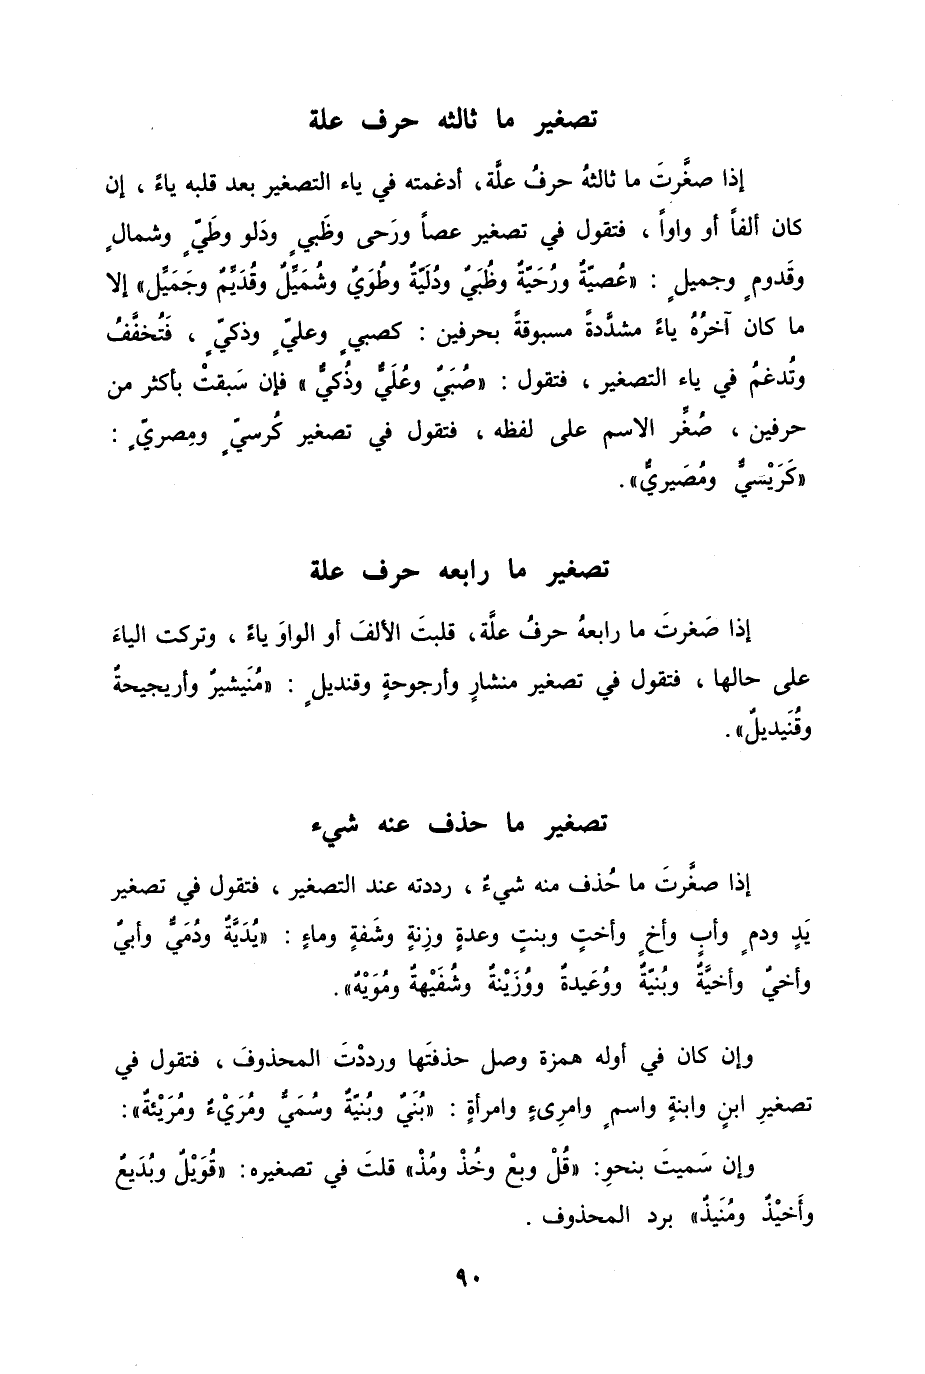 تصغير ما ثالثه حرف علة
إذا صغَّرتَ ما ثالثهُ حرفُ علَّة، أدغمته في ياء التصغير بعد قلبه ياءً ، إن
كان ألفاً أو واواً ، فتقول في تصغير عصاً ورَحى وظَبيٍ ودَلو وطَيّ وشمالٍ
وقَدومٍ وجميلٍ : «عُصيّةٌ ورُحَيّةٌ وظُبَيٌ ودُلَيّةٌ وطُوَيٌ وشُمَيِّلٌ وقُدَيِّمٌ وجَمَيِّل» إلا
ما كان آخرُهُ ياءً مشدَّدةً مسبوقةً بحرفين : كصبيٍ وعليّ وذكيّ ، فَتُخفَّفُ
وتُدغمُ في ياء التصغير ، فتقول : «صُبَيٌ وعُلَيٌّ وذُكيٌّ » فإن سَبقتْ بأكثر من
حرفين ، صُغَّر الاسم على لفظه ، فتقول في تصغير كُرسيّ ومِصريّ :
«كَرَيْسيٌّ ومُصَيريٌّ».
تصغير ما رابعه حرف علة
إذا صَغرتَ ما رابعهُ حرفُ علَّة، قلبتَ الألفَ أو الواوَ ياءً ، وتركت الياءَ
على حالها ، فتقول في تصغير منشارٍ وأرجوحةٍ وقنديلٍ : «مُنَيشيرٌ وأريجيحةٌ
وقُنَيديلٌ».
تصغير ما حذف عنه شيء
إذا صغَّرتَ ما حُذف منه شيءٌ ، رددته عند التصغير ، فتقول في تصغير
يَدٍ ودمٍ وأبٍ وأخٍ وأختٍ وبنتٍ وعدةٍ وزِنةٍ وشَفةٍ وماءٍ : «يُدَيَّةٌ ودُمَيٌّ وأبيٌ
وأخيٌ وأخيَّةٌ وبُنيّةٌ ووُعَيدةٌ ووُزَيْنةٌ وشُفَيْهةٌ ومُوَيْهٌ».
وإن كان في أوله همزة وصل حذفتَها ورددْتَ المحذوفَ ، فتقول في
تصغيرِ ابنٍ وابنةٍ واسمٍ وامرِىءٍ وامرأةٍ : «بُنَيٌ وبُنيّةٌ وسُمَيٌّ ومُرَيْءٌ ومُرَيْئةٌ»:
وإن سَميتَ بنحوِ: «قُلْ وبعْ وخُذْ ومُذْ» قلتَ في تصغيره: «قُوَيْلٌ وبُدَيعٌ
وأَخيْذٌ ومُنَيذٌ» برد المحذوف .
٩٠